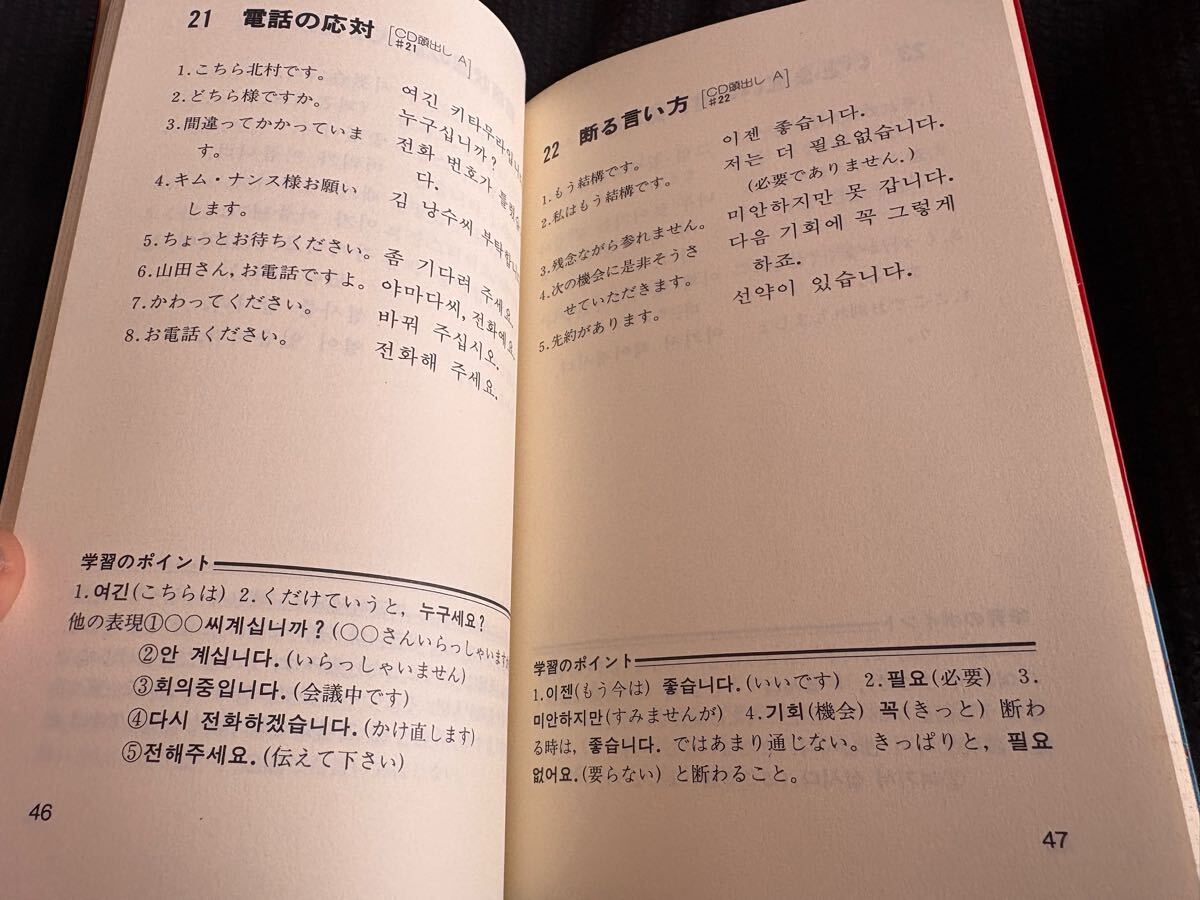 21 電話の応対 [CD頭出し A #21]
1.こちら北村です。
2.どちら様ですか。
3.間違ってかかっていま
す。
4.キム・ナンス様お願い
します。
5.ちょっとお待ちください。
6.山田さん,お電話ですよ。
7.かわってください。
8.お電話ください。
여긴 키타무라입니
누구십니까?
전화 번호가 틀렸습
다.
김 낭수씨 부탁합니
좀 기다려 주세요.
야마다씨, 전화에요.
바꿔 주십시오.
전화해 주세요.
学習のポイント
1.여긴(こちらは) 2.くだけていうと, 누구세요?
他の表現①○○씨계십니까? (○○さんいらっしゃいますか
②안 계십니다.(いらっしゃいません)
③회의중입니다.(会議中です)
④다시 전화하겠습니다.(かけ直します)
⑤전해주세요.(伝えて下さい)
46
22 断る言い方 [CD頭出し A #22]
1.もう結構です。
2.私はもう結構です。
3.残念ながら参れません。
4.次の機会に是非そうさ
せていただきます。
5.先約があります。
이젠 좋습니다.
저는 더 필요없습니다.
(必要でありません.)
미안하지만 못 갑니다.
다음 기회에 꼭 그렇게
하죠.
선약이 있습니다.
学習のポイント
1.이젠(もう今は) 좋습니다.(いいです) 2.필요(必要) 3.
미안하지만(すみませんが) 4.기회(機会) 꼭(きっと) 断わ
る時は, 좋습니다. ではあまり通じない。きっぱりと, 필요
없어요.(要らない) と断わること。
47